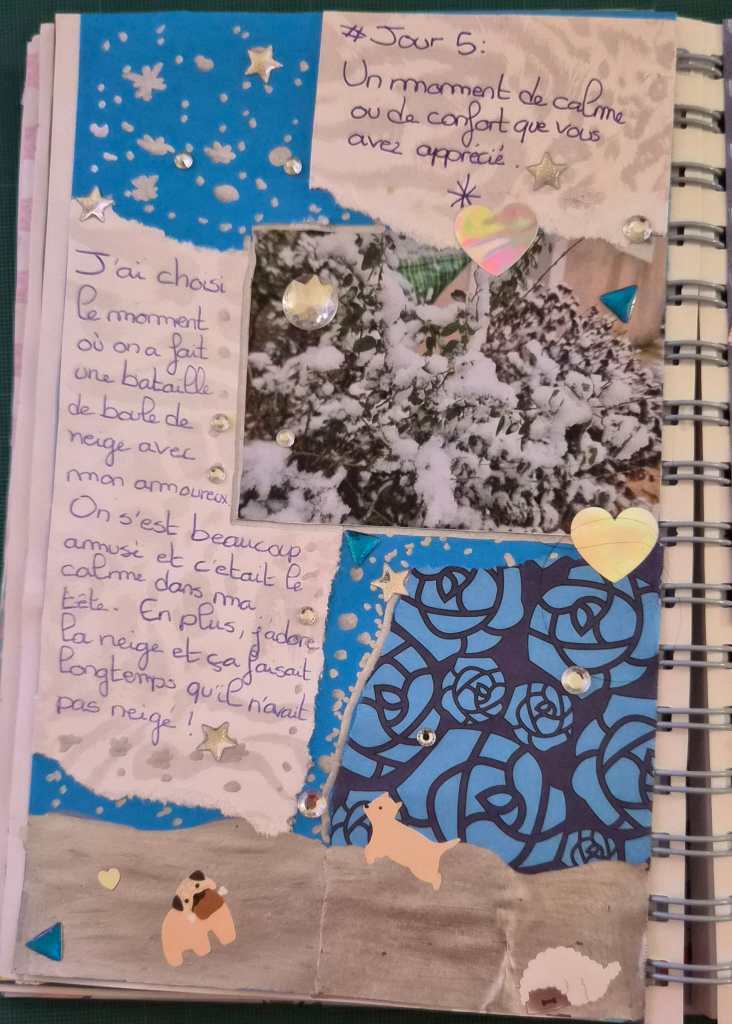 # Jour 5:
Un moment de calme
ou de confort que vous
avez apprécié.
J'ai choisi
le moment
où on a fait
une bataille
de boule de
neige avec
mon amoureux
On s'est beaucoup
amusé et c'etait le
calme dans ma
tête. En plus, j'adore
la neige et ça faisait
longtemps qu'il n'avait
pas neigé !